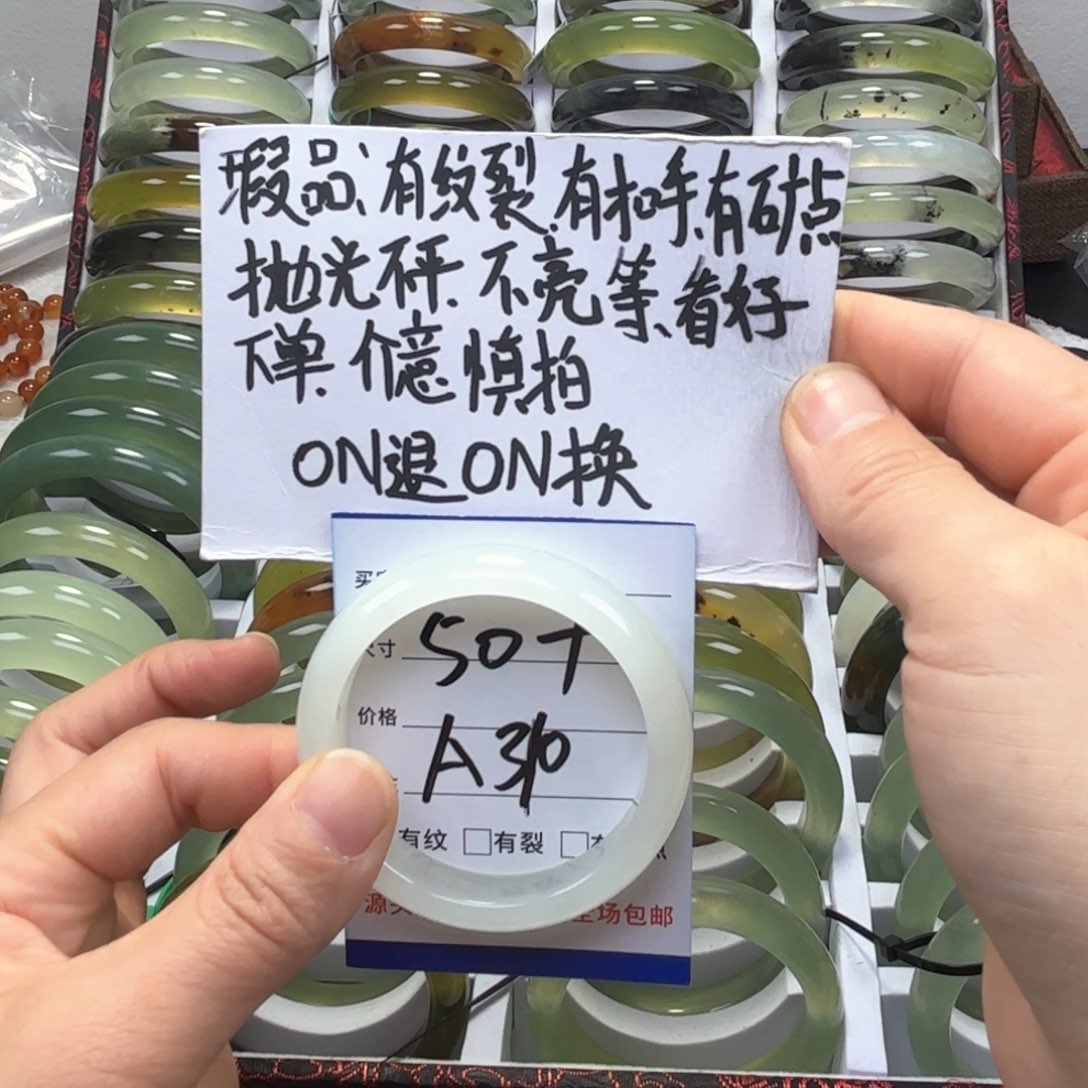 瑕品、有纹裂、有扣手、有矿点
抛光不平、不亮等、看好
下单、介意慎拍
ON退ON换
尺寸 50+
价格
A36
有纹 □有裂 □
全场包邮